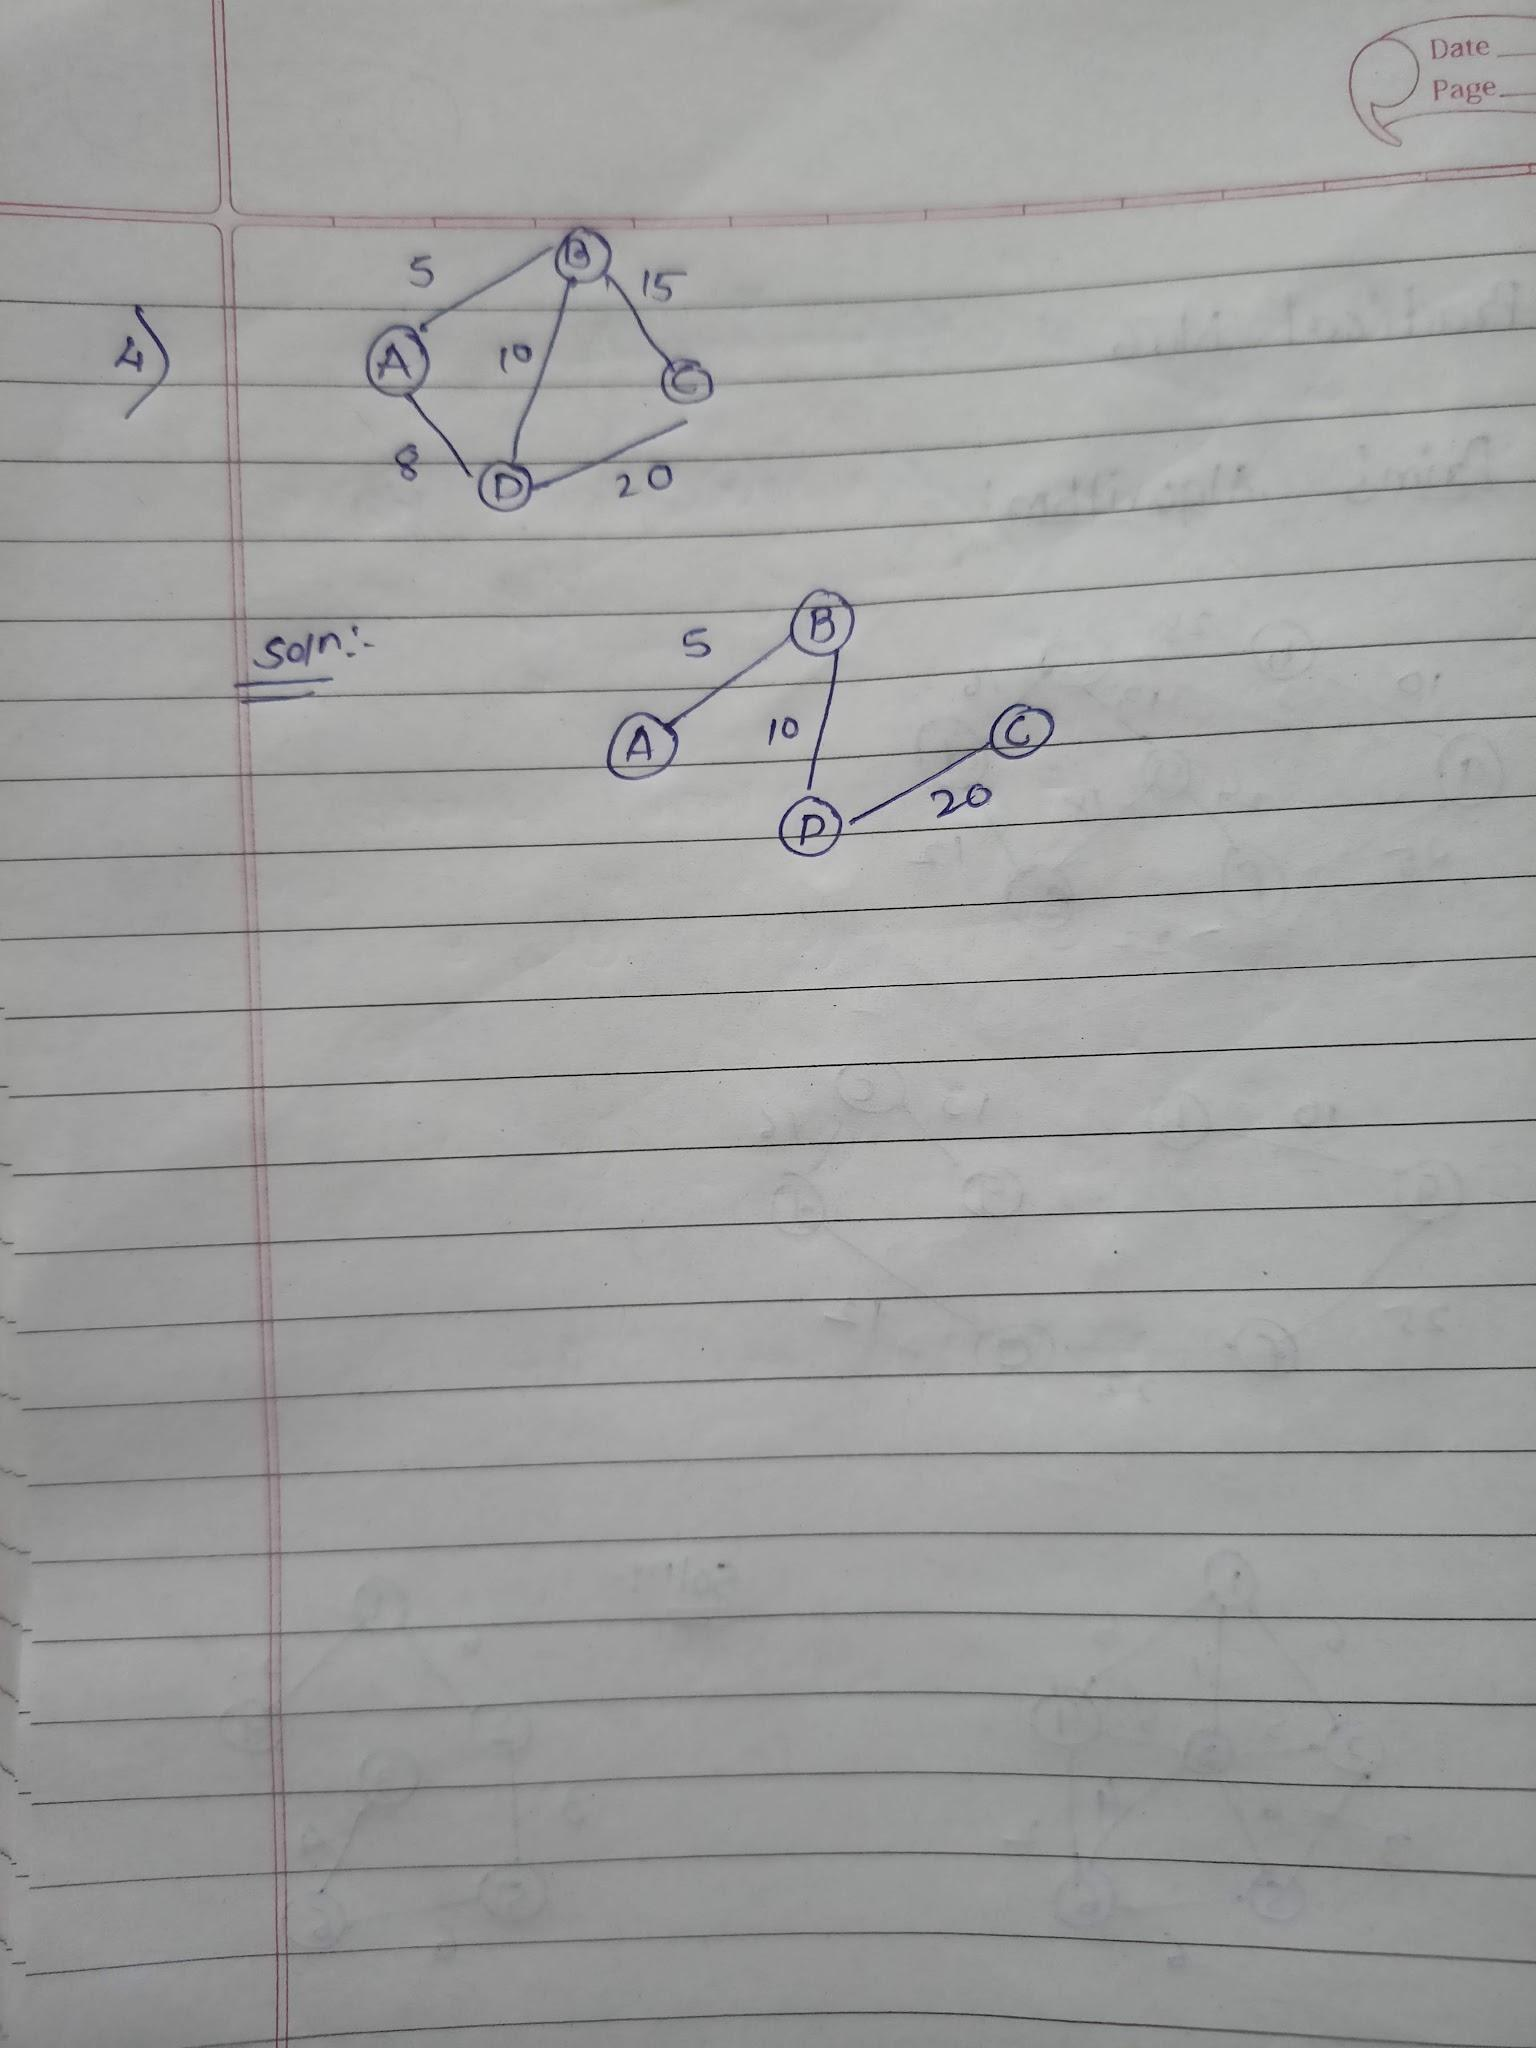 Date
Page
4)
5
B
15
A
10
C
8
D
20
Soln:-
5
B
A
10
C
D
20